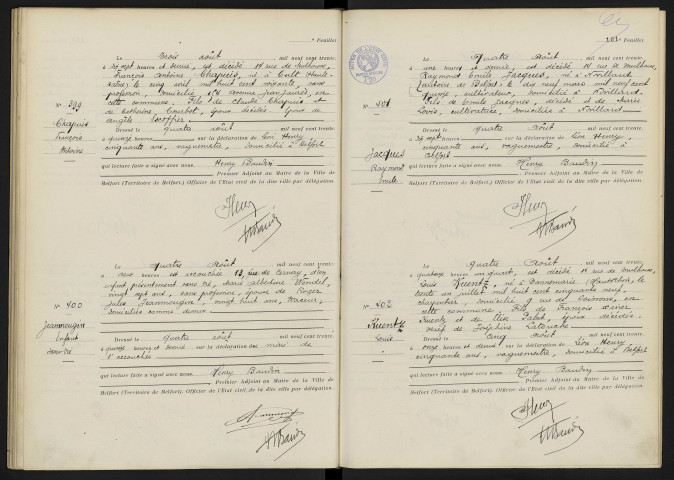 Feuillet
Le Trois Août mil neuf cent trente,
à dix sept heures et demie, est décédé 14 rue de Mulhouse,
François Antoine Chapuis, né à Cult Haute-
Saône, le cinq avril mil huit cent soixante, sans
profession, domicilié 174 avenue Jean Jaurès, en
cette commune. Fils de Claude Chapuis et
de Catherine Courbet, époux décédés. Époux de
Angèle
N° 399
Chapuis
François
Antoine
Dressé le quatre août mil neuf cent trente,
à quinze heures sur la déclaration de Léon Henry,
cinquante ans, vaguemestre, domicilié à Belfort
qui lecture faite a signé avec nous, Henry Baudin
Premier Adjoint au Maire de la Ville de
Belfort (Territoire de Belfort) Officier de l'Etat civil de la dite ville par délégation.
Le Quatre Août mil neuf cent trente,
à onze heures est accouchée 13, rue de Cernay, d'un
enfant présentement sans vie, Marie Albertine Wendel,
vingt sept ans, sans profession, épouse de Roger
Jules Jeanmougin, vingt huit ans, traceur,
domiciliés comme dessus
N° 400
Jeanmougin
Enfant
sans vie
Dressé le quatre août mil neuf cent trente,
à quinze heures et demie, sur la déclaration du mari de
l'accouchée
qui lecture faite a signé avec nous, Henry Baudin
Premier Adjoint au Maire de la Ville de
Belfort (Territoire de Belfort) Officier de l'Etat civil de la dite ville par délégation.
101e Feuillet
Le Quatre Août mil neuf cent trente,
à une heure et demie, est décédé 14 rue de Mulhouse,
Raymond Emile Jacques, né à Novillard
Territoire de Belfort le dix neuf mars mil neuf cent
quinze, cultivateur, domicilié à Novillard.
Fils de Emile Jacques, décédé et de Marie
Louis, cultivatrice, domiciliée à Novillard
N° 401
Jacques
Raymond
Emile
Dressé le quatre août mil neuf cent trente,
à dix sept heures sur la déclaration de Léon Henry,
cinquante ans, vaguemestre, domicilié à
Belfort
qui lecture faite a signé avec nous, Henry Baudin
Premier Adjoint au Maire de la Ville de
Belfort (Territoire de Belfort) Officier de l'Etat civil de la dite ville par délégation.
Le quatre Août mil neuf cent trente,
à quatorze heures un quart, est décédé 14 rue de Mulhouse,
Louis Ruentz, né à Dannemarie (Haut-Rhin), le
trente un juillet mil huit cent cinquante neuf,
charpentier, domicilié 9 rue de Soissons, en
cette commune. Fils de François Xavier
Ruentz et de époux décédés.
Veuf de Joséphine Latouche
N° 402
Ruentz
Louis
Dressé le Cinq août mil neuf cent trente,
à onze heures et demie, sur la déclaration de Léon Henry
cinquante ans, vaguemestre, domicilié à Belfort
qui lecture faite a signé avec nous, Henry Baudin
Premier Adjoint au Maire de la Ville de
Belfort (Territoire de Belfort) Officier de l'Etat civil de la dite ville par délégation.